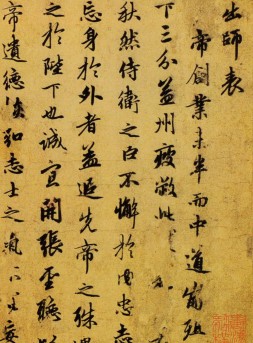 出師表
帝創業未半而中道崩殂
下三分益州疲敝此
秋然侍衛之臣不懈於內忠志
忘身於外者蓋追先帝之殊遇
之於陛下也誠宜開張聖聽
帝遺德恢弘志士之氣不宜妄